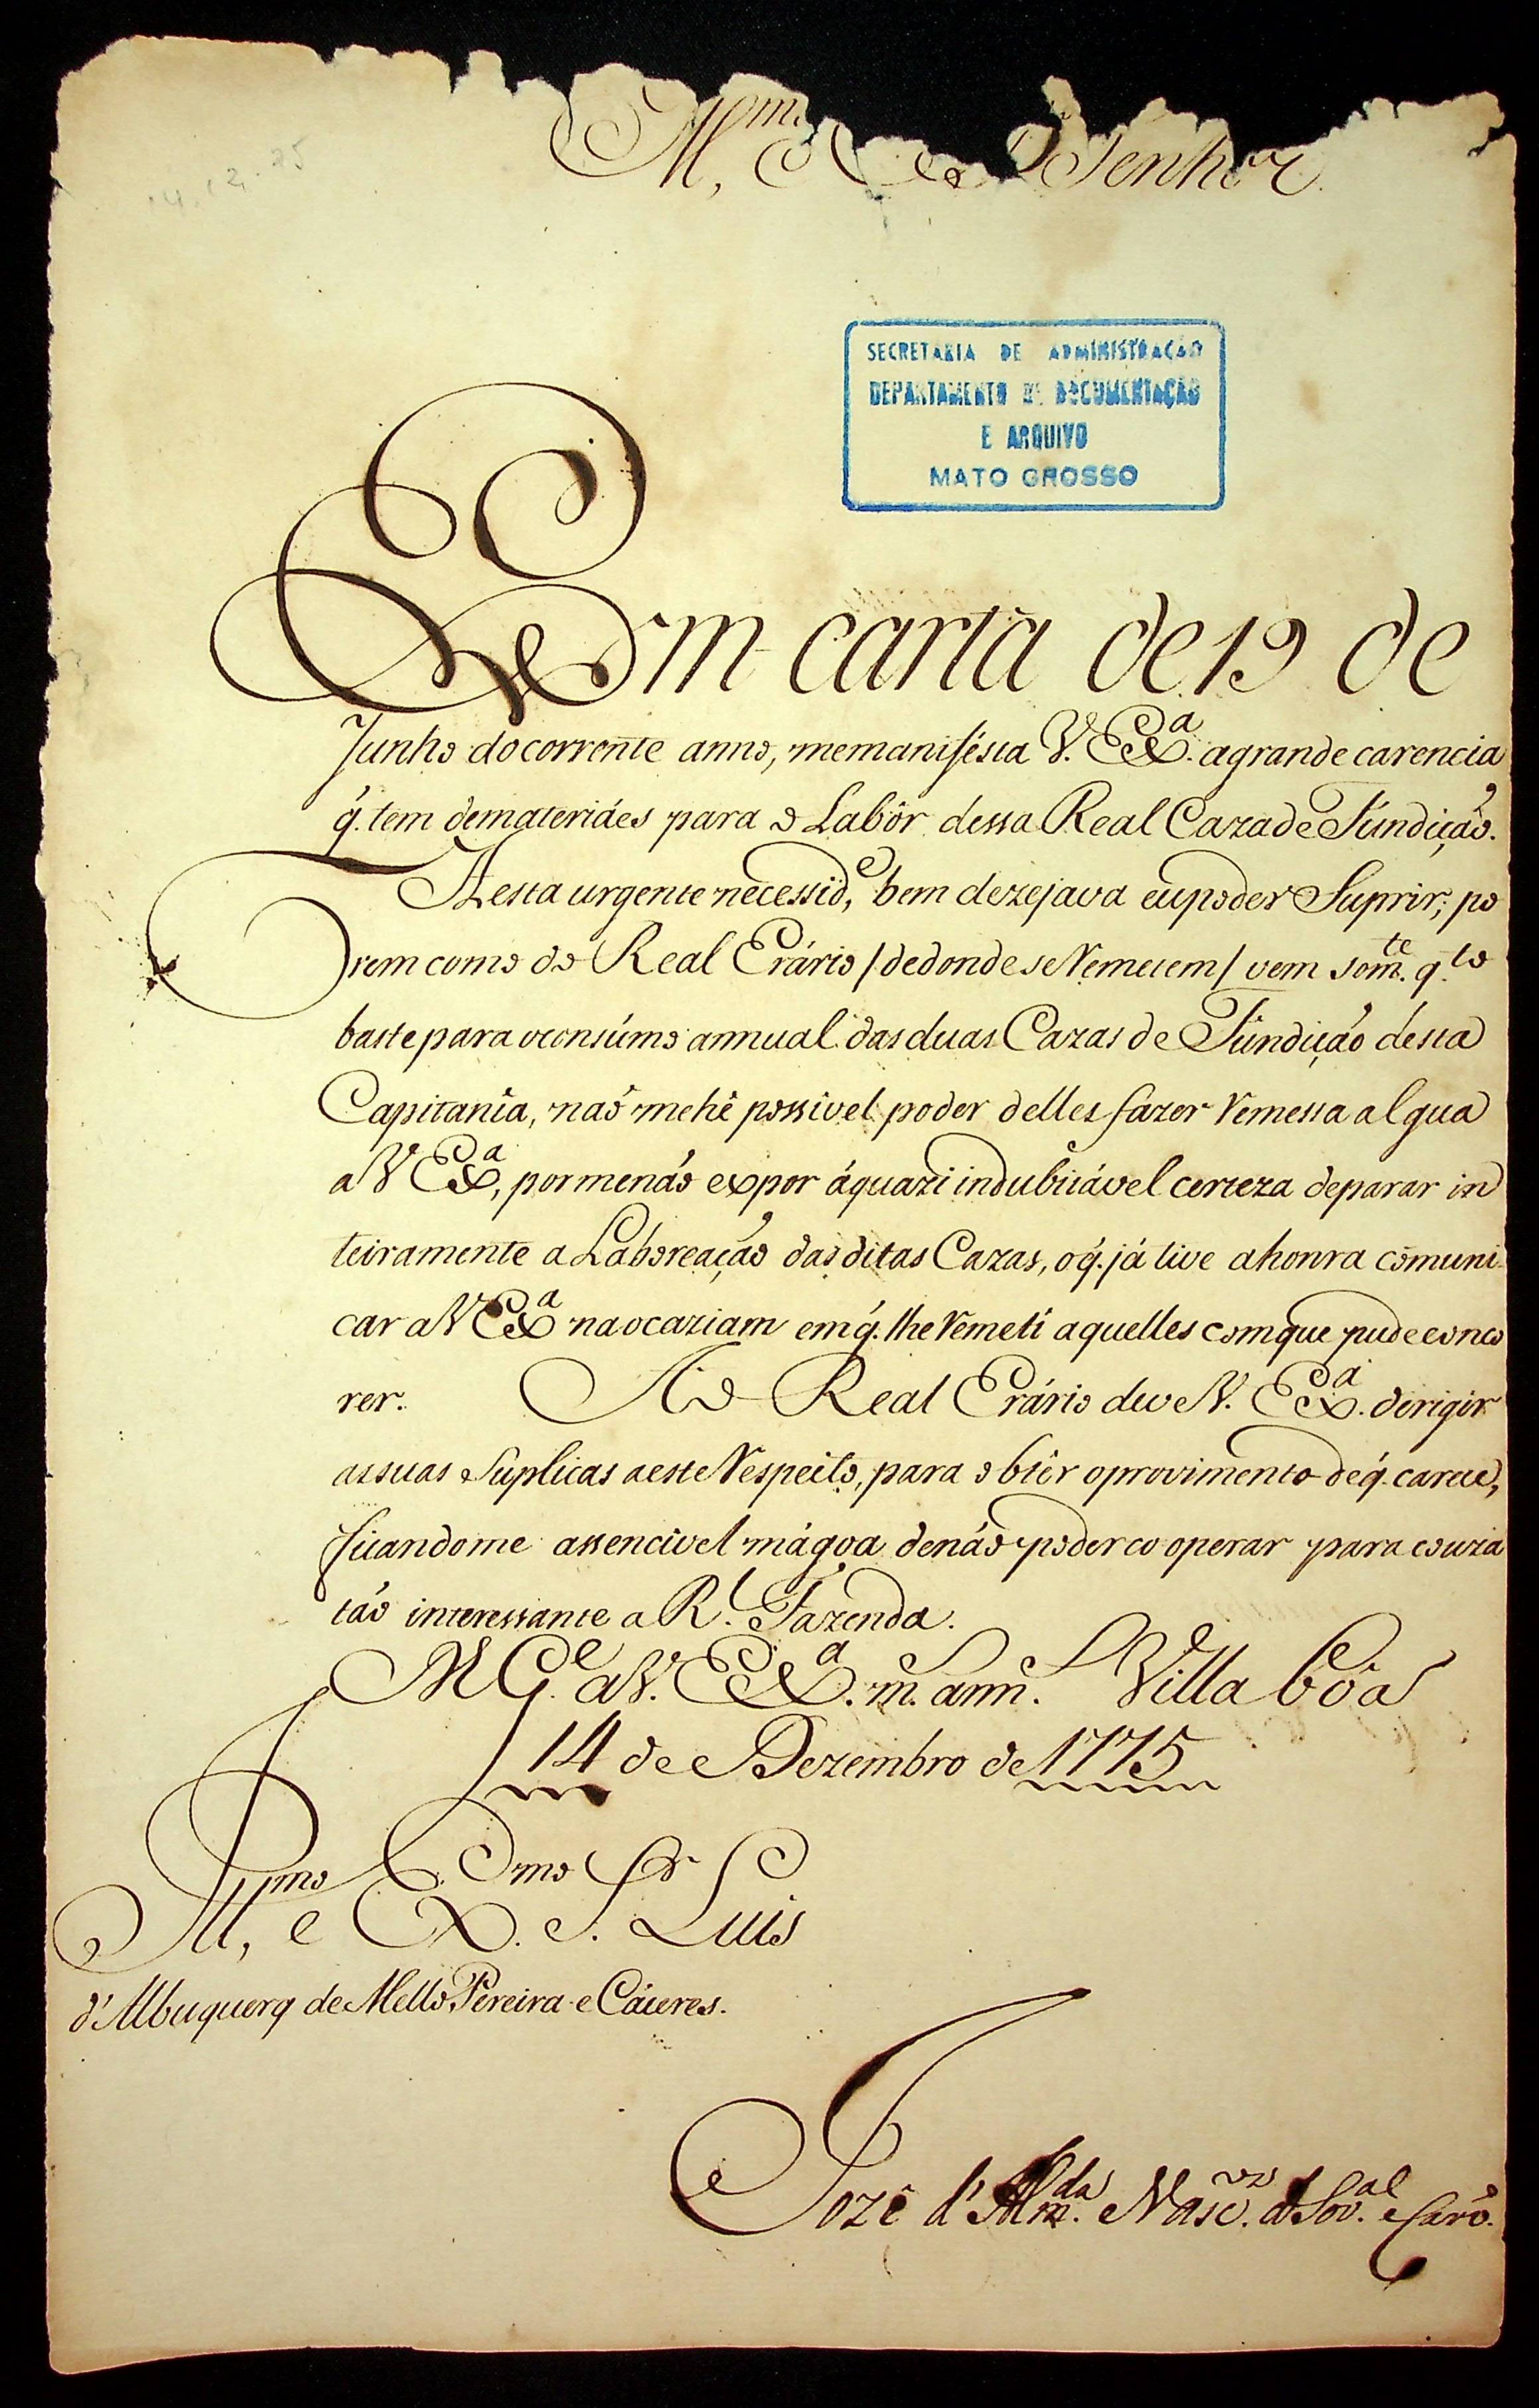 Ill.mo e Ex. Senhor
14.12.75
SECRETARIA DE ADMINISTRAÇÃO
DEPARTAMENTO DE DOCUMENTAÇÃO
E ARQUIVO
MATO GROSSO
Em carta de 19 de
Junho docorrente anno, memanifésta V. Exª. agrande carencia
q̃. tem demateriáes para o Labôr dessa Real Cazade Fúndição.
Aesta urgente necessid.e, bem dezejava eupoder Suprir; po
rem como do Real Erário /dedonde se Remetem/ vem som.te q.to
baste para oconsúmo annual das duas Cazas de Fúndição désta
Capitanîa, naõ mehê possivel poder delles fazer Remessa algua
a V Exª, pormenáo expor áquazi indubitável certeza deparar in
teiramente a Laboreação das ditas Cazas, oq̃. já tive ahonra cõmuni
car a V Exª naocaziam emq̃. lhe Remetí aquelles comque pude conco
rer. Ao Real Erário deve V. Exª. derigir
assuas Suplicas aeste Respeito, para obter oprovimento deq̃. carece,
ficandome assencivel mágoa denáo poder co operar para couza
táo interessante a R.l Fazenda.
N G.e a V. Exª. m. ann.s Villa bôa
14 de Dezembro de 1775
Ill.mo e Ex.mo S.r Luis
d'Albuquerq de Mello Pereira e Cáceres.
Jozê d'Alm.da e Vasc.os d Sov.al e Carv.o